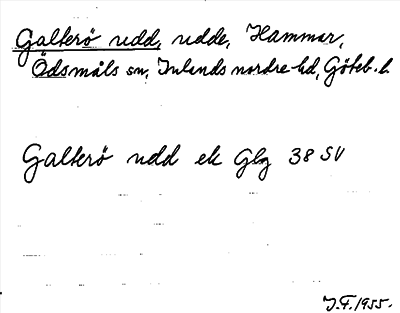 Galterö udd, udde, Hammar,
Ödsmåls sn, Inlands nordre hd, Göteb. l.
Galterö udd ek Glg 38 SV
J.F. 1955.